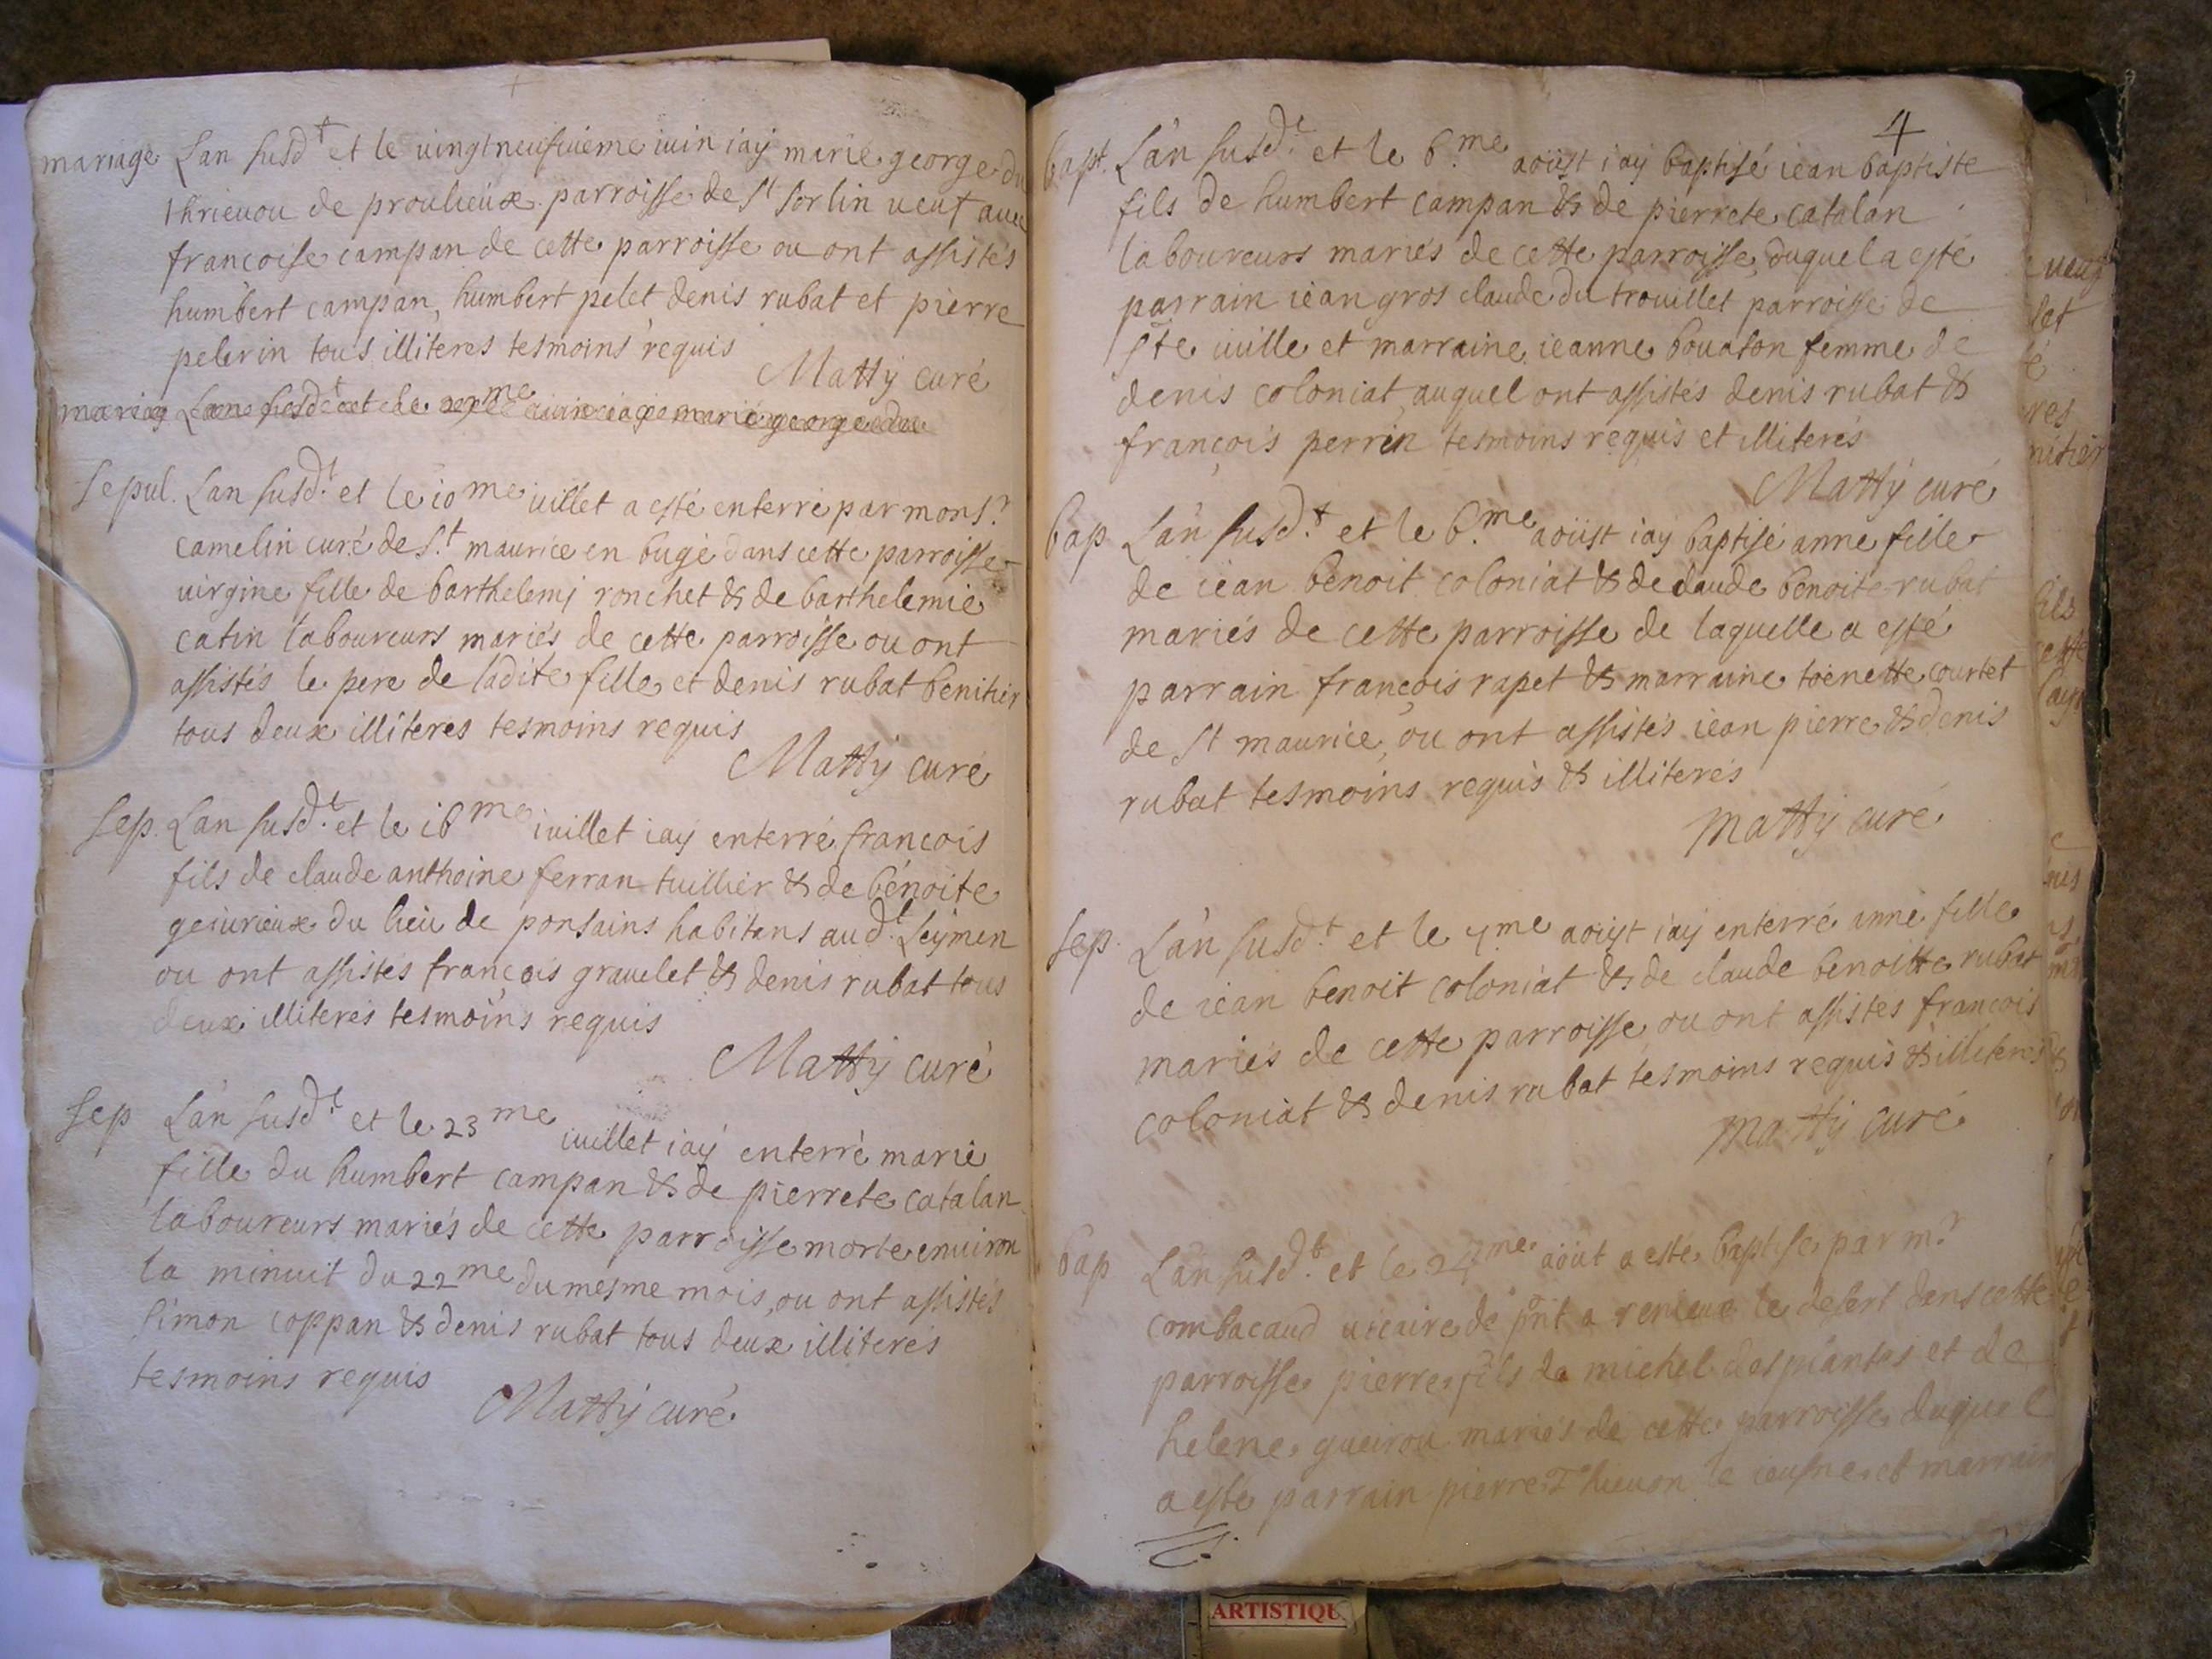 mariage Lan susd.t et le uingtneufuieme iuin iay marié george du
thrieuou de proulieux parroisse de St sorlin ueuf auec
francoise campan de cette parroisse ou ont assistés
humbert campan, humbert pelet denis rubat et pierre
pelerin tous illiteres tesmoins requis
Matty curé
Sepul. Lan susd.t et le 10me iuillet a esté enterré par mons.r
camelin curé de S.t maurice en bugé dans cette parroisse
uirgine fille de barthelemj ronchet & de barthelemie
catin laboureurs mariés de cette parroisse ou ont
assistés le pere de ladite fille et denis rubat benitier
tous deux illiteres tesmoins requis
Matty curé
Sep. Lan susd.t et le 16me iuillet iay enterré francois
fils de claude anthoine ferran tuillier & de bénoite
geiurieux du lieu de ponsains habitans aud.t Leymen
ou ont assistés françois grauelet & denis rubat tous
deux illiterés tesmoins requis
Matty curé
Sep Lan susd.t et le 23me iuillet iay enterré marie
fille du humbert campan & de pierrete catalan
laboureurs mariés de cette parroisse morte enuiron
la minuit du 22me du mesme mois, ou ont assistés
simon coppan & denis rubat tous deux illiterés
tesmoins requis
Matty curé
4
bapt. Lan susd.t et le 6.me aoüst iay baptisé iean baptiste
fils de humbert campan & de pierrete catalan
laboureurs mariés de cette parroisse, duquel a esté
parrain iean gros claude du trouillet parroisse de
Ste iuille et marraine ieanne bouaton femme de
denis coloniat auquel ont assistés denis rubat &
françois perrin tesmoins requis et illiterés
Matty curé
bap Lan susd.t et le 6.me aoüst iay baptisé anne fille
de iean benoit coloniat & de claude benoite rubat
mariés de cette parroisse de laquelle a esté
parrain françois rapet & marraine toenette courtet
de St maurice, ou ont assistés iean pierre & denis
rubat tesmoins requis & illiterés
matty curé
sep. Lan susd.t et le me aoüst iay enterré anne fille
de iean benoit coloniat & de claude benoitte rubat
mariés de cette parroisse ou ont assistés francois
coloniat & denis rubat tesmoins requis & illiterés
matty curé
bap Lan susd.t et le 24me aoüt a esté baptisé par m.r
combacaud uicaire de pñt a le desert dans cette
parroisse pierre fils de michel desplantes et de
helene mariés de cette parroisse duquel
a esté parrain pierre Thieuon le ieusne et marrain
ARTISTIQU